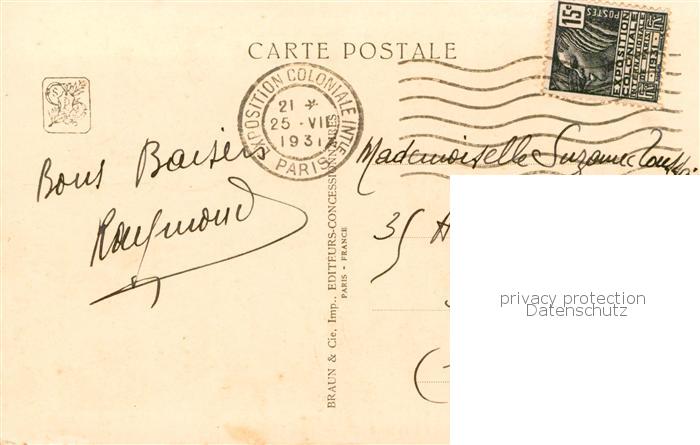 CARTE POSTALE
15c
POSTES
EXPOSITION
COLONIALE
INTERNATIONALE
1931
EXPOSITION COLONIALE INTLE
21 *
25 - VII
1931
PARIS
Bons Baisers
Raymond
Mademoiselle Suzanne
35
BRAUN & Cie, Imp., EDITEURS-CONCESSIONNAIRES
PARIS - FRANCE
privacy protection
Datenschutz